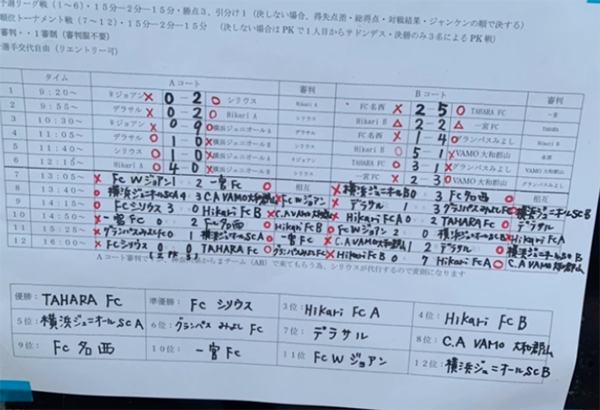 予選リーグ戦（1～6）・15分―2分―15分・勝点3、引分け1（決しない場合、得失点差・総得点・対戦結果・ジャンケンの順で決する）
順位トーナメント戦（7～12）・15分―2分―15分　（決しない場合はPKで1人目からサドンデス・決勝のみ3名によるPK戦）
審判・・1審制（審判服不要）
選手交代自由（リエントリー可）
タイム Aコート 審判 Bコート 審判
1 9:20～ Wジョアン × 0 - 2 ○ シリウス Hikari A FC名西 × 2 5 ○ TAHARA FC 一宮
2 9:55～ デラサル × 0 - 2 ○ Hikari A シリウス Hikari B △ 2 2 △ 一宮FC
3 10:30～ Wジョアン × 0 9 ○ 横浜ジュニオールA デラサル FC名西 × 1 4 ○ グランパスみよし Hikari B
4 11:05～ デラサル ○ 1 0 × 横浜ジュニオールB Hikari B ○ 5 1 × VAMO大和郡山
5 11:40～ シリウス ○ 1 0 × 横浜ジュニオールA Wジョアン TAHARA FC ○ 3 1 × グランパスみよし
6 12:15～ Hikari A ○ 4 0 × 横浜ジュニオールB シリウス 一宮FC × 2 3 ○ VAMO大和郡山 グランパスみよし
7 13:05～ × FC Wジョアン 1 2 一宮FC ○ 相互 × 横浜ジュニオールB 0 3 FC名西 ○ 相互
8 13:40～ ○ 横浜ジュニオールSCA 4 3 C.A VAMO大和郡山 × FC Wジョアン × デラサル 3 グランパスみよしFC ○ 横浜ジュニオールSCB
9 14:15～ ○ FCシリウス 3 0 Hikari FC B × C.A VAMO大和郡山 × Hikari FC A 0 2 TAHARA FC ○ デラサル
10 14:50～ × 一宮FC 0 2 FC名西 ○ Hikari FC B ○ FC Wジョアン 2 0 横浜ジュニオールSCB × Hikari FC A
11 15:25～ × グランパスみよしFC 0 1 横浜ジュニオールSCA ○ 一宮FC × C.A VAMO大和郡山 1 2 デラサル ○ 横浜ジュニオールSCB
12 16:00～ × FCシリウス 0 0 TAHARA FC ○ グランパスみよしFC × Hikari FC B 0 7 Hikari FC A ○ C.A VAMO大和郡山
優勝： TAHARA FC 準優勝： FC シリウス 3位： Hikari FC A 4位： Hikari FC B
5位： 横浜ジュニオールSC A 6位： グランパス みよし FC 7位： デラサル 8位： C.A VAMO 大和郡山
9位： FC 名西 10位： 一宮 FC 11位 FC W ジョアン 12位： 横浜ジュニオールSC B